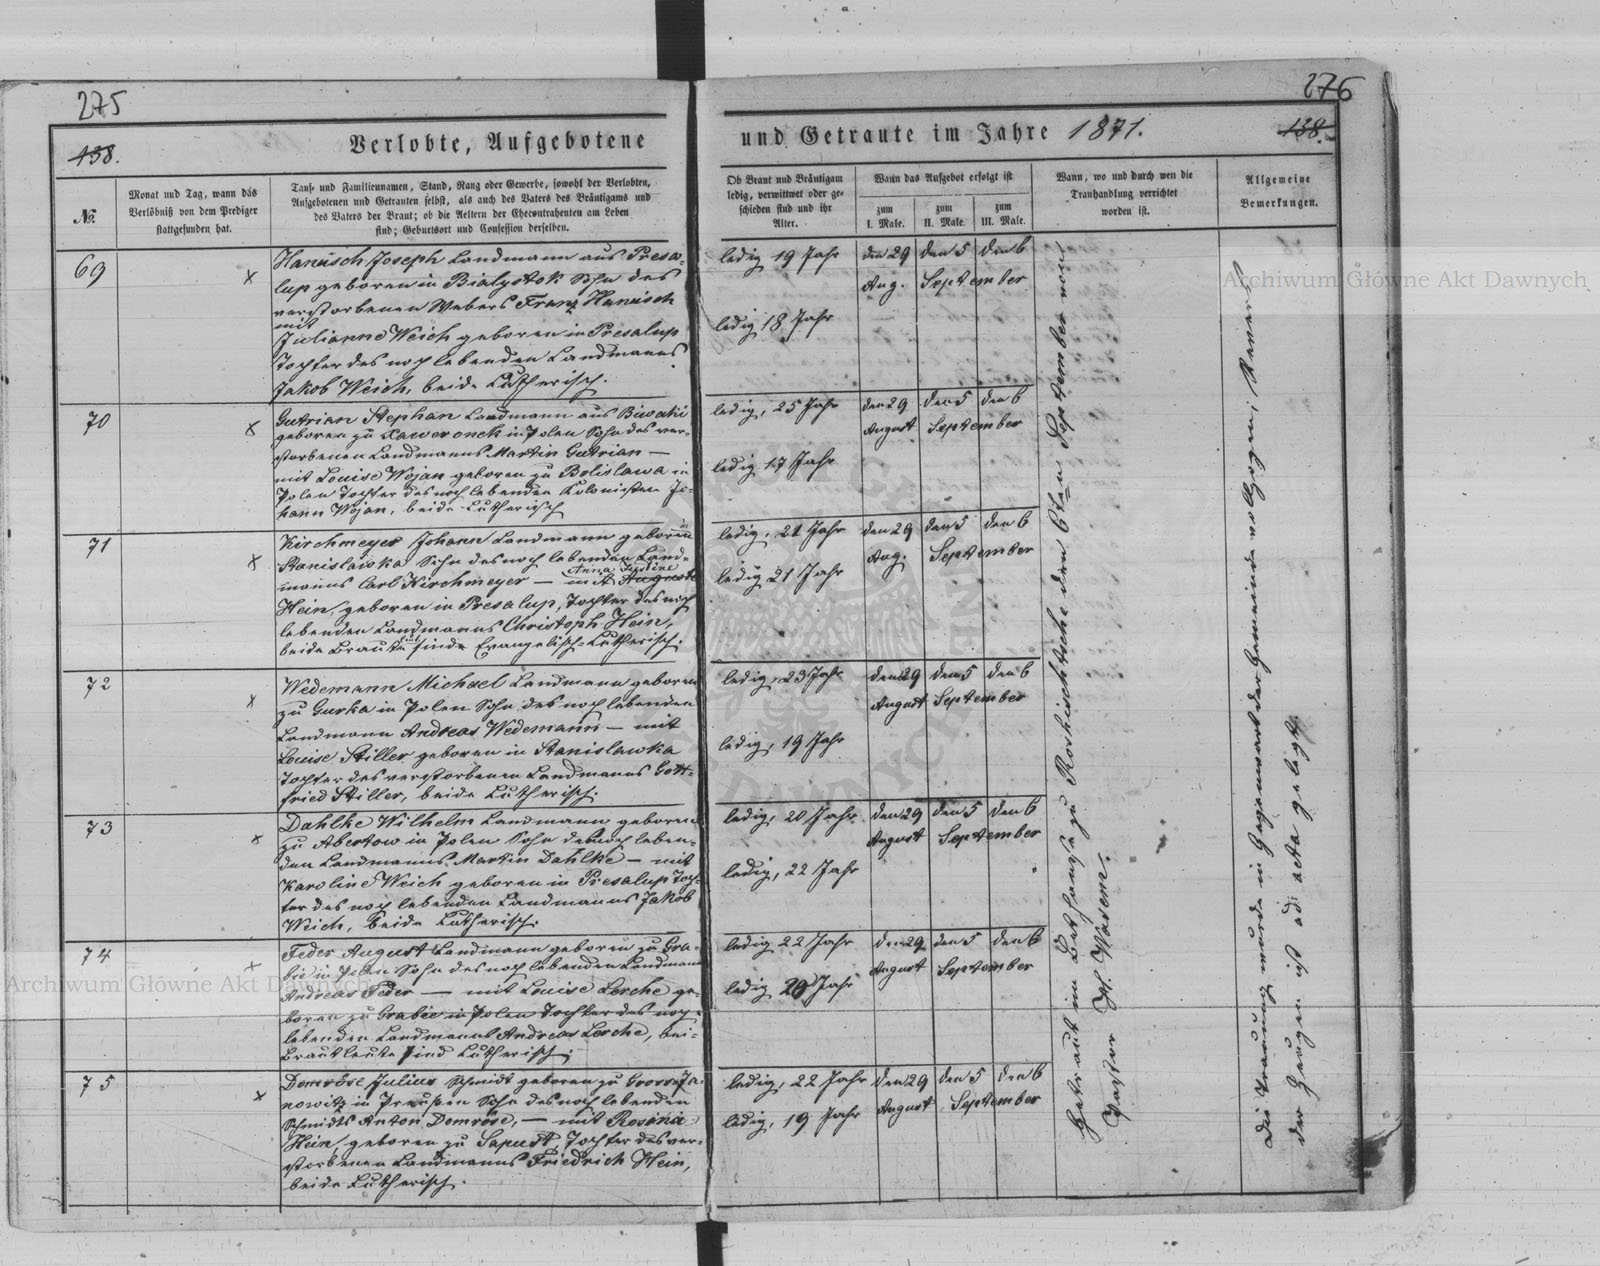 275
276
138.
Verlobte, Aufgebotene
und Getraute im Jahre 1871.
138.
No.
Monat und Tag, wann das
Verlöbniß von dem Prediger
stattgefunden hat.
Tauf- und Familiennamen, Stand, Rang oder Gewerbe, sowohl der Verlobten,
Aufgebotenen und Getrauten selbst, als auch des Vaters des Bräutigams und
des Vaters der Braut; ob die Aeltern der Ehecontrahenten am Leben
sind; Geburtsort und Confession derselben.
Ob Braut und Bräutigam
ledig, verwittwet oder ge-
schieden sind und ihr
Alter.
Wann das Aufgebot erfolgt ist
zum
I. Male.
zum
II. Male.
zum
III. Male.
Wann, wo und durch wen die
Trauhandlung verrichtet
worden ist.
Allgemeine
Bemerkungen.
69
x
Hanüsch Joseph Landmann aus Presa-
lup geboren in Bialystok Sohn des
verstorbenen Webers Franz Hanüsch
mit
Julianne Weich geboren in Presalup
Tochter des noch lebenden Landmanns
Jakob Weich, beide Lutherisch.
ledig 19 Jahr
ledig 18 Jahr
den 29 den 5 den 6
Aug. September
70
x
Gutrian Stephan Landmann aus
geboren zu in Polen Sohn des ver-
storbenen Landmanns Martin Gutrian —
mit Louise Wojan geboren zu Bolislawa in
Polen Tochter des noch lebenden Kolonisten Jo-
hann Wojan, beide Lutherisch
ledig, 25 Jahr
ledig 17 Jahr
den 29 den 5 den 6
August September
71
x
Kirchmeyer Johann Landmann geboren in
Stanislawka Sohn des noch lebenden Land-
manns Carl Kirchmeyer — mit Auguste
Anna Justine
Hein, geboren in Presalup, Tochter des noch
lebenden Landmanns Christoph Hein,
beide sind Evangelisch-Lutherisch.
ledig, 21 Jahr
ledig 21 Jahr
den 29 den 5 den 6
Aug. September
72
x
Wedemann Michael Landmann geboren
zu Gurka in Polen Sohn des noch lebenden
Landmann Andreas Wedemann — mit
Louise Stiller geboren in Stanislawka
Tochter des verstorbenen Landmanns Gott-
fried Stiller, beide Lutherisch.
ledig, 23 Jahr
ledig, 19 Jahr
den 29 den 5 den 6
August September
73
x
Dahlke Wilhelm Landmann geboren
zu Abertow in Polen Sohn des noch leben-
den Landmanns Martin Dahlke — mit
Karoline Weich geboren in Presalup Toch-
ter des noch lebenden Landmanns Jakob
Weich, beide Lutherisch.
ledig, 20 Jahr
ledig, 22 Jahr
den 29 den 5 den 6
August September
74
x
Feder August Landmann geboren zu Gra-
bie in Polen Sohn des noch lebenden Landmanns
Andreas Feder — mit Louise Lerche ge-
boren zu Grabie in Polen Tochter des noch
lebenden Landmanns Andreas Lerche, bei-
Brautleute sind Lutherisch.
ledig 22 Jahr
ledig 20 Jahr
den 29 den 5 den 6
August September
75
x
Domröse Julius Schmidt geboren zu Gross Ja-
nowitz in Preußen Sohn des noch lebenden
Schmidts Anton Domröse, — mit Rosina
Hein, geboren zu Sapust, Tochter des ver-
storbenen Landmanns Friedrich Hein,
beide Lutherisch.
ledig, 22 Jahr
ledig, 19 Jahr
den 29 den 5 den 6
August September
Getraut im Bethause zu Roshischtsche den 6ten September vom
Pastor Wasem.
Die Trauung wurde in Gegenwart der Gemeinde vollzogen, Revers
der Zeugen ist ad acta gelegt.
Archiwum Główne Akt Dawnych
Archiwum Główne Akt Dawnych